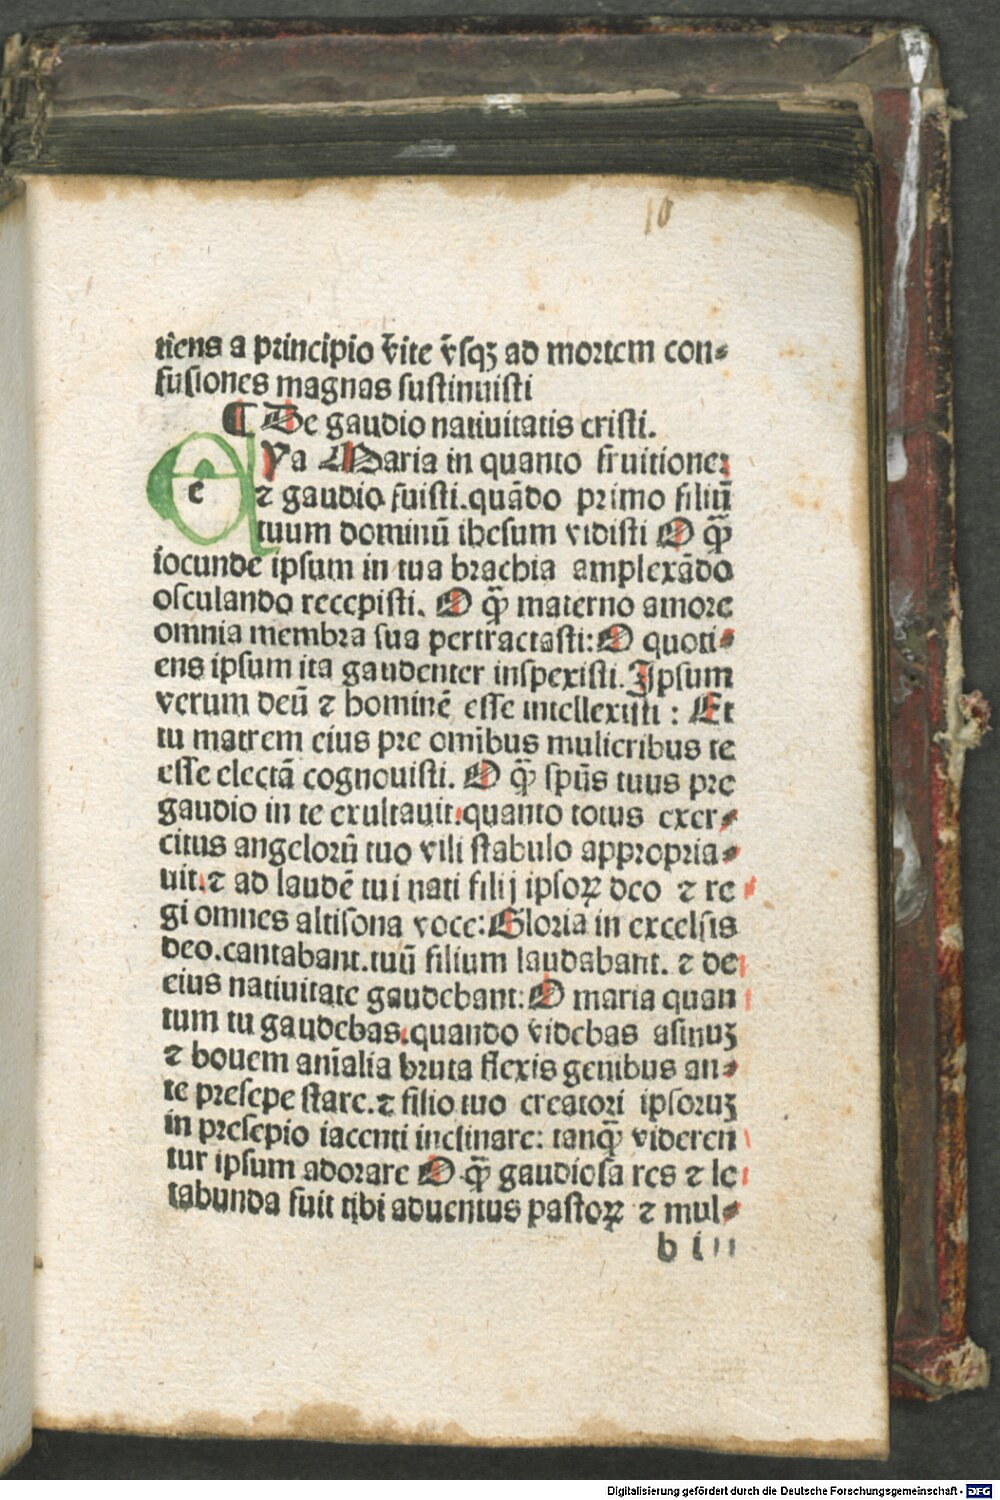 10
tiens a principio v̄ite v̄sqꝫ ad mortem con⸗
fusiones magnas sustinuisti
¶ De gaudio natiuitatis cristi.
eYa Maria in quanto fruitione:
⁊ gaudio fuisti.quādo primo filiū
tuum dominū ihesum vidisti O qͣ̄
iocunde ipsum in tua brachia amplexādo
osculando recepisti. O qͣ̄ materno amore
omnia membra sua pertractasti: O quoti⸗
ens ipsum ita gaudenter inspexisti. Ipsum
verum deū ⁊ hominē esse intellexisti : Et
tu matrem eius pre omībus mulieribus te
esse electā cognouisti. O qͣ̄ spūs tuus pre
gaudio in te exultauit.quanto totus exer⸗
citus angelorū tuo vili stabulo appropria⸗
uit.⁊ ad laudē tui nati filij ipsoꝝ deo ⁊ re
gi omnes altisona voce: Gloria in excelsis
deo.cantabant.tuū filium laudabant. ⁊ de
eius natiuitate gaudebant: O maria quan
tum tu gaudebas.quando videbas asinuꝫ
⁊ bouem anīalia bruta flexis genibus an⸗
te presepe stare.⁊ filio tuo creatori ipsoruꝫ
in presepio iacenti inclinare: tanqͣ̄ videren
tur ipsum adorare O qͣ̄ gaudiosa res ⁊ le
tabunda fuit tibi aduentus pastoꝝ ⁊ mul⸗
b iii
Digitalisierung gefördert durch die Deutsche Forschungsgemeinschaft - DFG